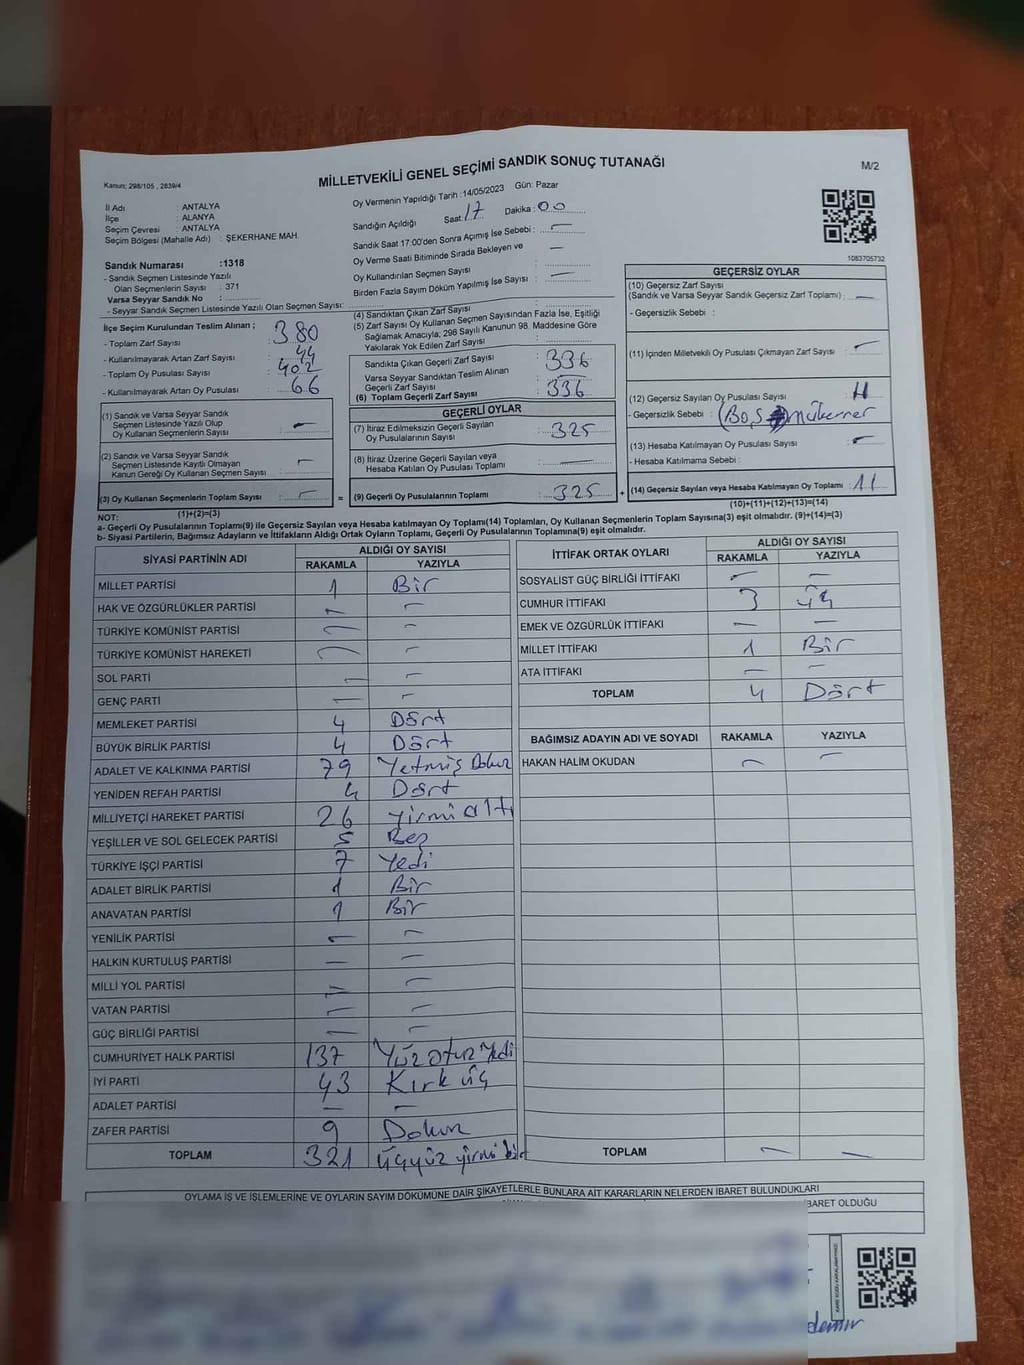 MİLLETVEKİLİ GENEL SEÇİMİ SANDIK SONUÇ TUTANAĞI
M/2
Kanun; 298/105 , 2839/4
İl Adı : ANTALYA
İlçe : ALANYA
Seçim Çevresi : ANTALYA
Seçim Bölgesi (Mahalle Adı) : ŞEKERHANE MAH.
Sandık Numarası :1318
- Sandık Seçmen Listesinde Yazılı
Olan Seçmenlerin Sayısı : 371
Varsa Seyyar Sandık No :
- Seyyar Sandık Seçmen Listesinde Yazılı Olan Seçmen Sayısı:
Oy Vermenin Yapıldığı Tarih :14/05/2023 Gün: Pazar
Sandığın Açıldığı Saat: 17 Dakika : 00
Sandık Saat 17:00'den Sonra Açımış İse Sebebi : —
Oy Verme Saati Bitiminde Sırada Bekleyen ve —
Oy Kullandırılan Seçmen Sayısı
Birden Fazla Sayım Döküm Yapılmış İse Sayısı : —
1083705732
İlçe Seçim Kurulundan Teslim Alınan ;
- Toplam Zarf Sayısı : 380
- Kullanılmayarak Artan Zarf Sayısı : 44
- Toplam Oy Pusulası Sayısı : 402
- Kullanılmayarak Artan Oy Pusulası : 66
(1) Sandık ve Varsa Seyyar Sandık
Seçmen Listesinde Yazılı Olup
Oy Kullanan Seçmenlerin Sayısı : —
(2) Sandık ve Varsa Seyyar Sandık
Seçmen Listesinde Kayıtlı Olmayan
Kanun Gereği Oy Kullanan Seçmen Sayısı : —
(3) Oy Kullanan Seçmenlerin Toplam Sayısı : — =
(1)+(2)=(3)
(4) Sandıktan Çıkan Zarf Sayısı :
(5) Zarf Sayısı Oy Kullanan Seçmen Sayısından Fazla İse, Eşitliği
Sağlamak Amacıyla; 298 Sayılı Kanunun 98. Maddesine Göre
Yakılarak Yok Edilen Zarf Sayısı :
Sandıkta Çıkan Geçerli Zarf Sayısı : 336
Varsa Seyyar Sandıktan Teslim Alınan
Geçerli Zarf Sayısı : —
(6) Toplam Geçerli Zarf Sayısı : 336
GEÇERLİ OYLAR
(7) İtiraz Edilmeksizin Geçerli Sayılan
Oy Pusulalarının Sayısı : 325
(8) İtiraz Üzerine Geçerli Sayılan veya
Hesaba Katılan Oy Pusulası Toplamı : —
(9) Geçerli Oy Pusulalarının Toplamı : 325 +
GEÇERSİZ OYLAR
(10) Geçersiz Zarf Sayısı
(Sandık ve Varsa Seyyar Sandık Geçersiz Zarf Toplamı) : —
- Geçersizlik Sebebi :
(11) İçinden Milletvekili Oy Pusulası Çıkmayan Zarf Sayısı : —
(12) Geçersiz Sayılan Oy Pusulası Sayısı : 11
- Geçersizlik Sebebi : (Boş mükerrer
(13) Hesaba Katılmayan Oy Pusulası Sayısı : —
- Hesaba Katılmama Sebebi :
(14) Geçersiz Sayılan veya Hesaba Katılmayan Oy Toplamı : 11
(10)+(11)+(12)+(13)=(14)
NOT:
a- Geçerli Oy Pusulalarının Toplamı(9) ile Geçersiz Sayılan veya Hesaba katılmayan Oy Toplamı(14) Toplamları, Oy Kullanan Seçmenlerin Toplam Sayısına(3) eşit olmalıdır. (9)+(14)=(3)
b- Siyasi Partilerin, Bağımsız Adayların ve İttifakların Aldığı Ortak Oyların Toplamı, Geçerli Oy Pusulalarının Toplamına(9) eşit olmalıdır.
SİYASİ PARTİNİN ADI ALDIĞI OY SAYISI
RAKAMLA YAZIYLA
MİLLET PARTİSİ 1 Bir
HAK VE ÖZGÜRLÜKLER PARTİSİ — —
TÜRKİYE KOMÜNİST PARTİSİ — —
TÜRKİYE KOMÜNİST HAREKETİ — —
SOL PARTİ — —
GENÇ PARTİ — —
MEMLEKET PARTİSİ 4 Dört
BÜYÜK BİRLİK PARTİSİ 4 Dört
ADALET VE KALKINMA PARTİSİ 79 Yetmiş Dokuz
YENİDEN REFAH PARTİSİ 4 Dört
MİLLİYETÇİ HAREKET PARTİSİ 26 yirmi altı
YEŞİLLER VE SOL GELECEK PARTİSİ 5 Beş
TÜRKİYE İŞÇİ PARTİSİ 7 Yedi
ADALET BİRLİK PARTİSİ 1 Bir
ANAVATAN PARTİSİ 1 Bir
YENİLİK PARTİSİ — —
HALKIN KURTULUŞ PARTİSİ — —
MİLLİ YOL PARTİSİ — —
VATAN PARTİSİ — —
GÜÇ BİRLİĞİ PARTİSİ — —
CUMHURİYET HALK PARTİSİ 137 Yüz otuz Yedi
İYİ PARTİ 43 Kırk üç
ADALET PARTİSİ — —
ZAFER PARTİSİ 9 Dokuz
TOPLAM 321 üçyüz yirmi bir
İTTİFAK ORTAK OYLARI ALDIĞI OY SAYISI
RAKAMLA YAZIYLA
SOSYALIST GÜÇ BİRLİĞİ İTTİFAKI — —
CUMHUR İTTİFAKI 3 üç
EMEK VE ÖZGÜRLÜK İTTİFAKI — —
MİLLET İTTİFAKI 1 Bir
ATA İTTİFAKI — —
TOPLAM 4 Dört
BAĞIMSIZ ADAYIN ADI VE SOYADI RAKAMLA YAZIYLA
HAKAN HALİM OKUDAN — —
TOPLAM — —
OYLAMA İŞ VE İŞLEMLERİNE VE OYLARIN SAYIM DÖKÜMÜNE DAİR ŞİKAYETLERLE BUNLARA AİT KARARLARIN NELERDEN İBARET BULUNDUKLARI
İBARET OLDUĞU
demir